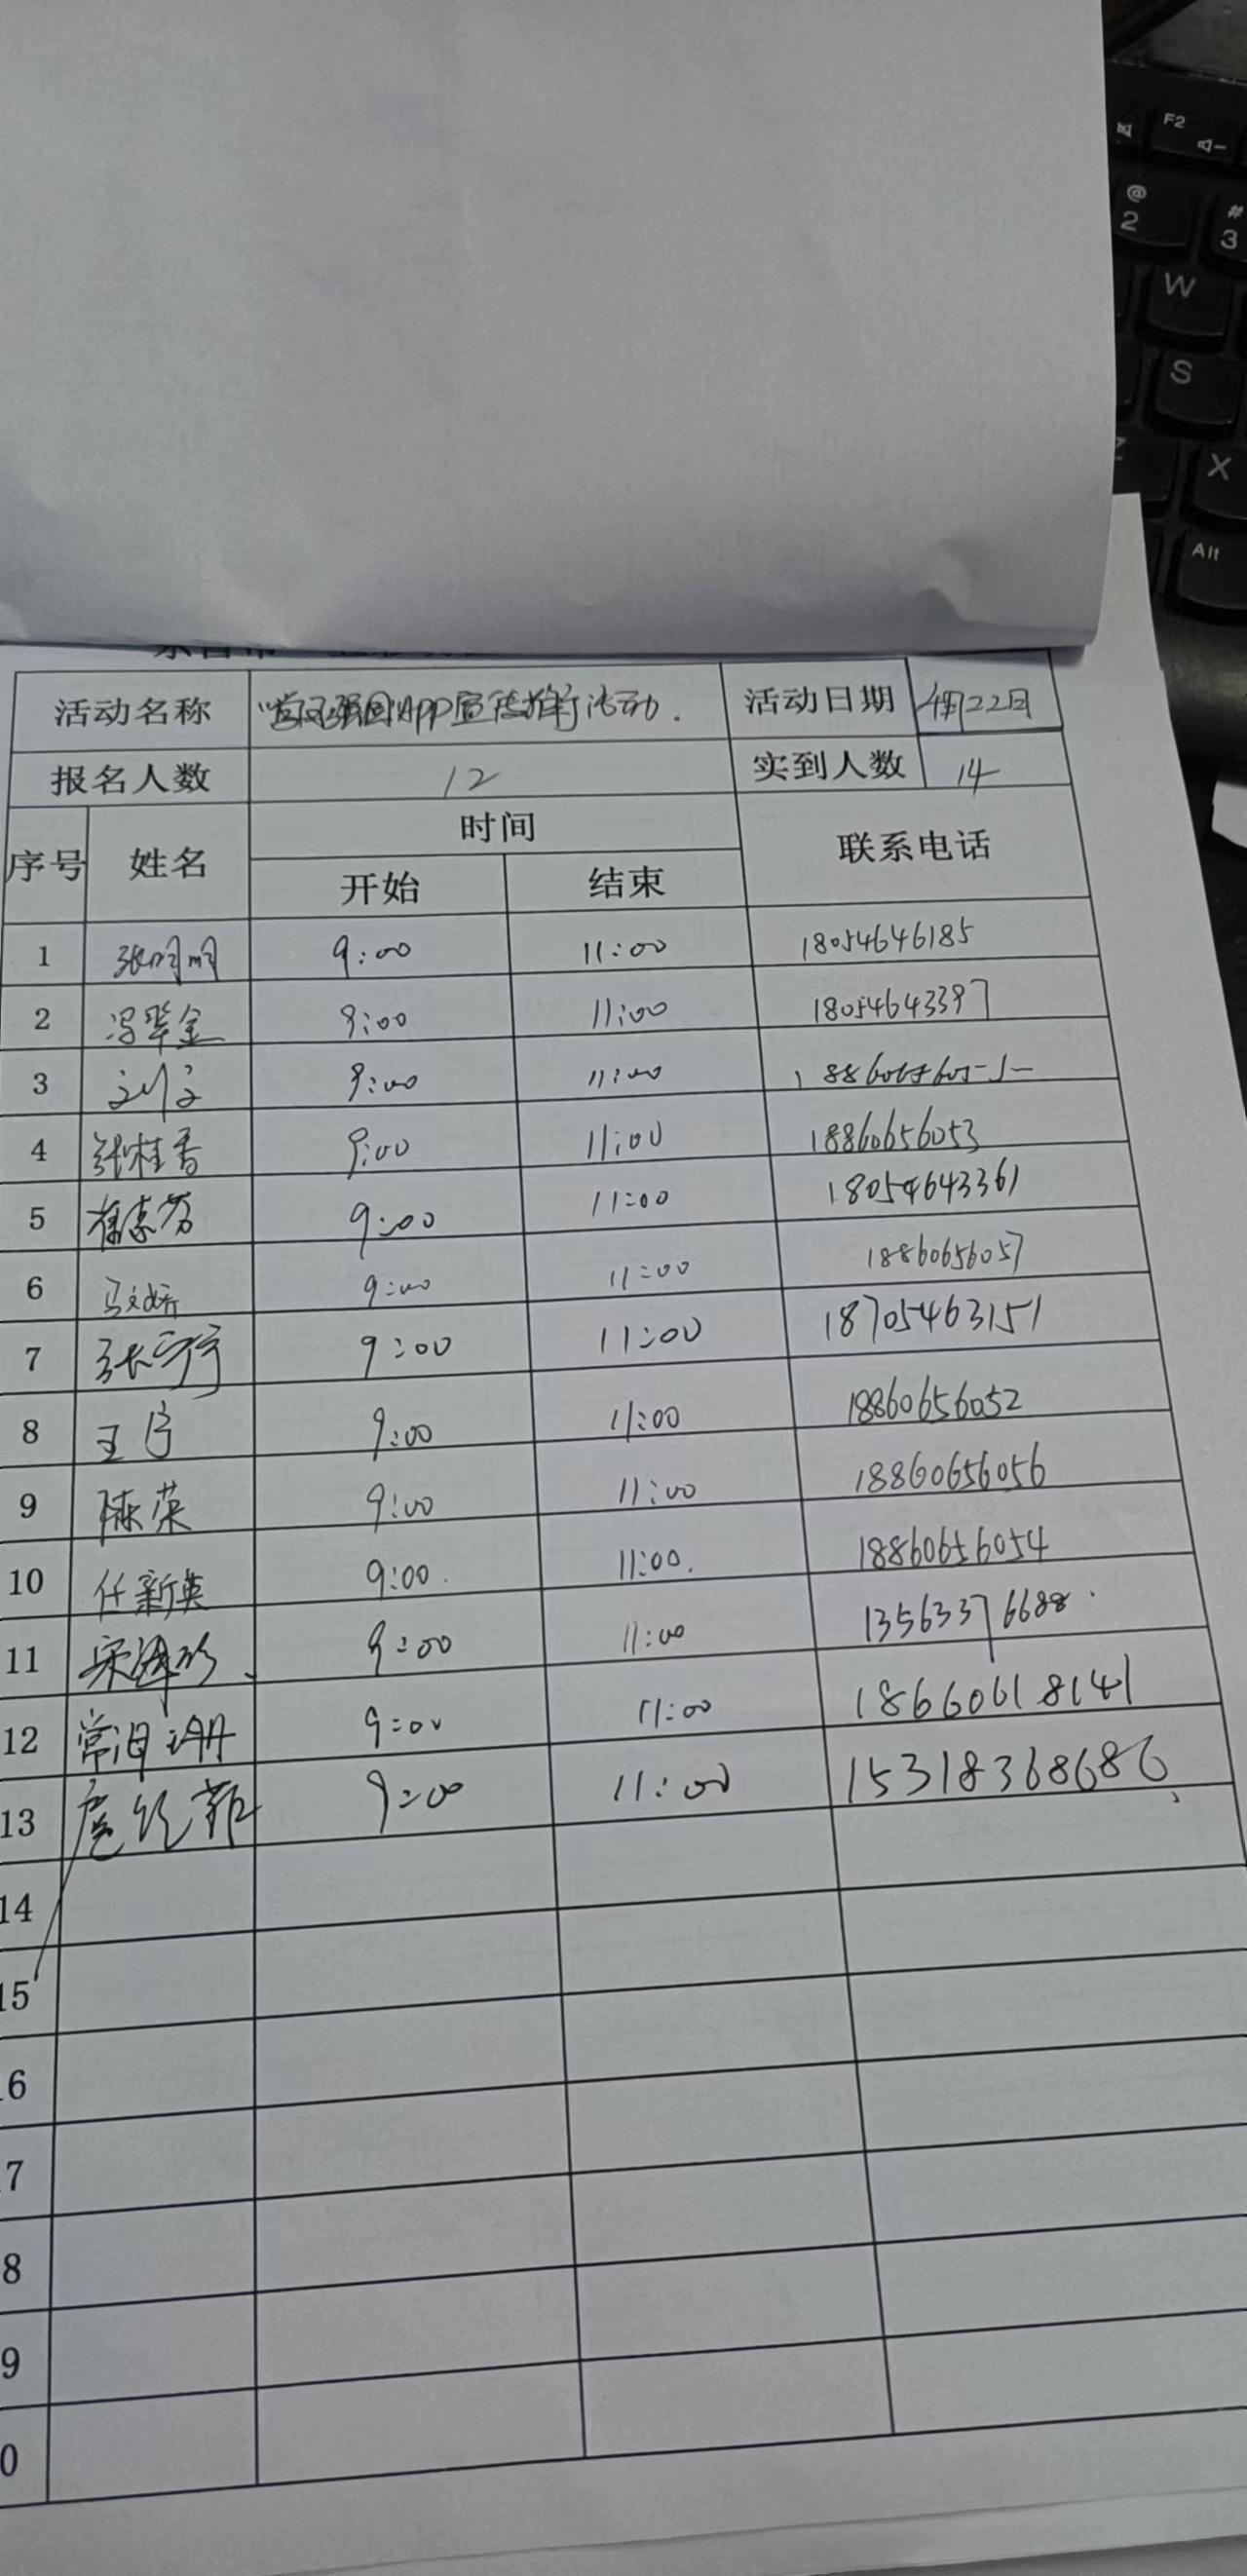 活动名称 "学习强国"APP宣传推行活动. 活动日期 4月22日
报名人数 12 实到人数 14
序号 姓名 时间 联系电话
开始 结束
1 张明明 9:00 11:00 18054646185
2 冯翠金 9:00 11:00 18054643397
3 9:00 11:00
4 张桂香 9:00 11:00 18860656053
5 崔素芳 9:00 11:00 18054643361
6 马文婷 9:00 11:00 18860656057
7 张宁宁 9:00 11:00 18705463151
8 王宁 9:00 11:00 18860656052
9 陈荣 9:00 11:00 18860656056
10 任新英 9:00. 11:00. 18860656054
11 9:00 11:00 13563376688
12 常泪珊 9:00 11:00 18660618141
13 9:00 11:00 15318368686
14
15
6
7
8
9
0
F2
@
2
#
3
W
S
Z
X
Alt